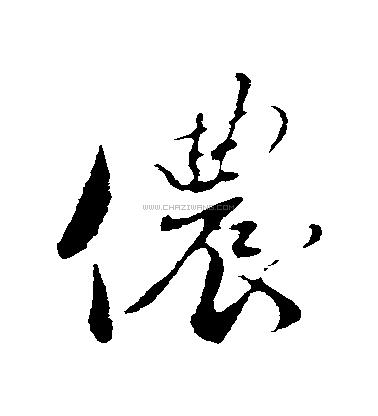 儂
WWW.CHAZIWANG.COM